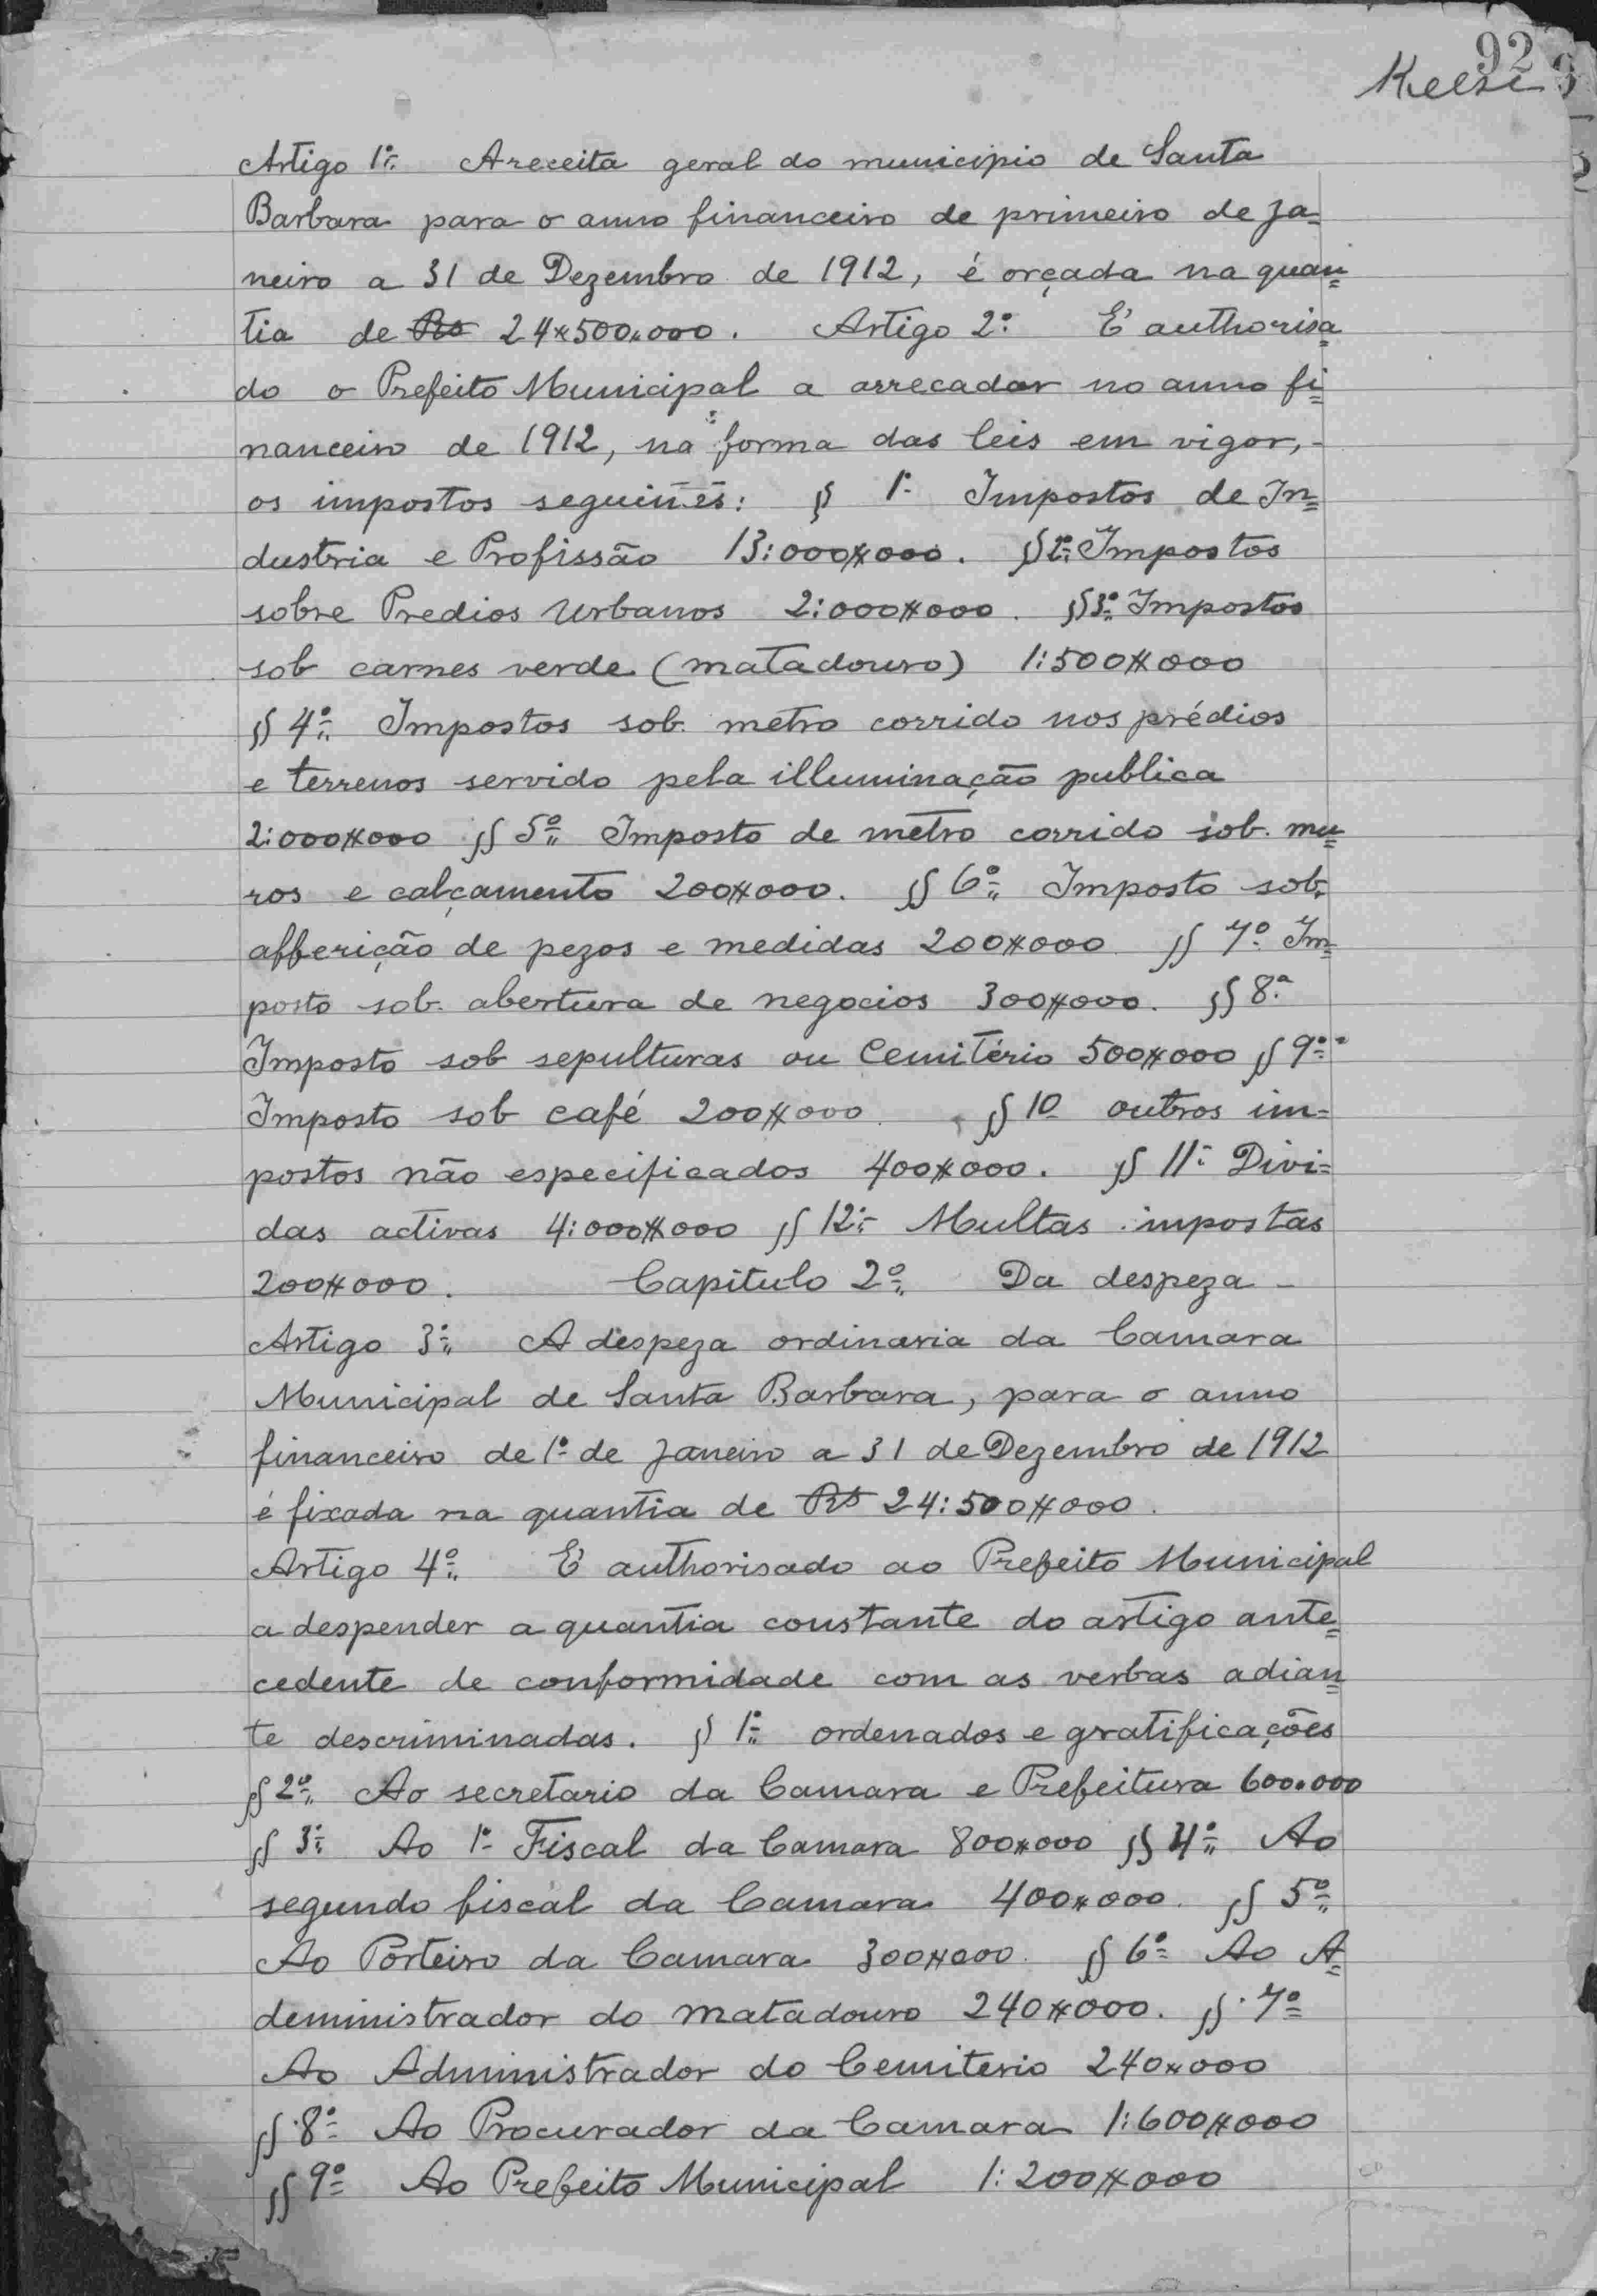 92
Artigo 1º. A receita geral do municipio de Santa
Barbara para o anno financeiro de primeiro de Ja=
neiro a 31 de Dezembro de 1912, é orçada na quan=
tia de Rs 24$500.000. Artigo 2º. E' authorisa=
do o Prefeito Municipal a arrecadar no anno fi=
nanceiro de 1912, na forma das leis em vigor,-
os impostos seguintes: § 1º Impostos de In=
dustria e Profissão 13:000$000. §2º Impostos
sobre Predios Urbanos 2:000$000. §3º Impostos
sob carnes verde (matadouro) 1:500$000
§ 4º Impostos sob. metro corrido nos prédios
e terrenos servido pela illuminação publica
2:000$000 § 5º Imposto de metro corrido sob. mu=
ros e calçamento 200$000. § 6º Imposto sob.
afferição de pezos e medidas 200$000 § 7º Im=
posto sob. abertura de negocios 300$000. § 8ª
Imposto sob sepulturas ou Cemitério 500$000 § 9º
Imposto sob café 200$000. § 10 outros im=
postos não especificados 400$000. § 11º Divi=
das activas 4:000$000 § 12º Multas impostas
200$000. Capitulo 2º Da despeza -
Artigo 3º A despeza ordinaria da Camara
Municipal de Santa Barbara, para o anno
financeiro de 1º de Janeiro a 31 de Dezembro de 1912
é fixada na quantia de Rs 24:500$000.
Artigo 4º E' authorisado ao Prefeito Municipal
a despender a quantia constante do artigo ante=
cedente de conformidade com as verbas adian=
te descriminadas. § 1º ordenados e gratificações
§ 2º Ao secretario da Camara e Prefeitura 600.000
§ 3º Ao 1º Fiscal da Camara 800$000 § 4º Ao
segundo fiscal da Camara 400$000. § 5º
Ao Porteiro da Camara 300$000. § 6º Ao A=
deministrador do matadouro 240$000. § 7º
Ao Administrador do Cemiterio 240$000
§ 8º Ao Procurador da Camara 1:600$000
§ 9º Ao Prefeito Municipal 1:200$000